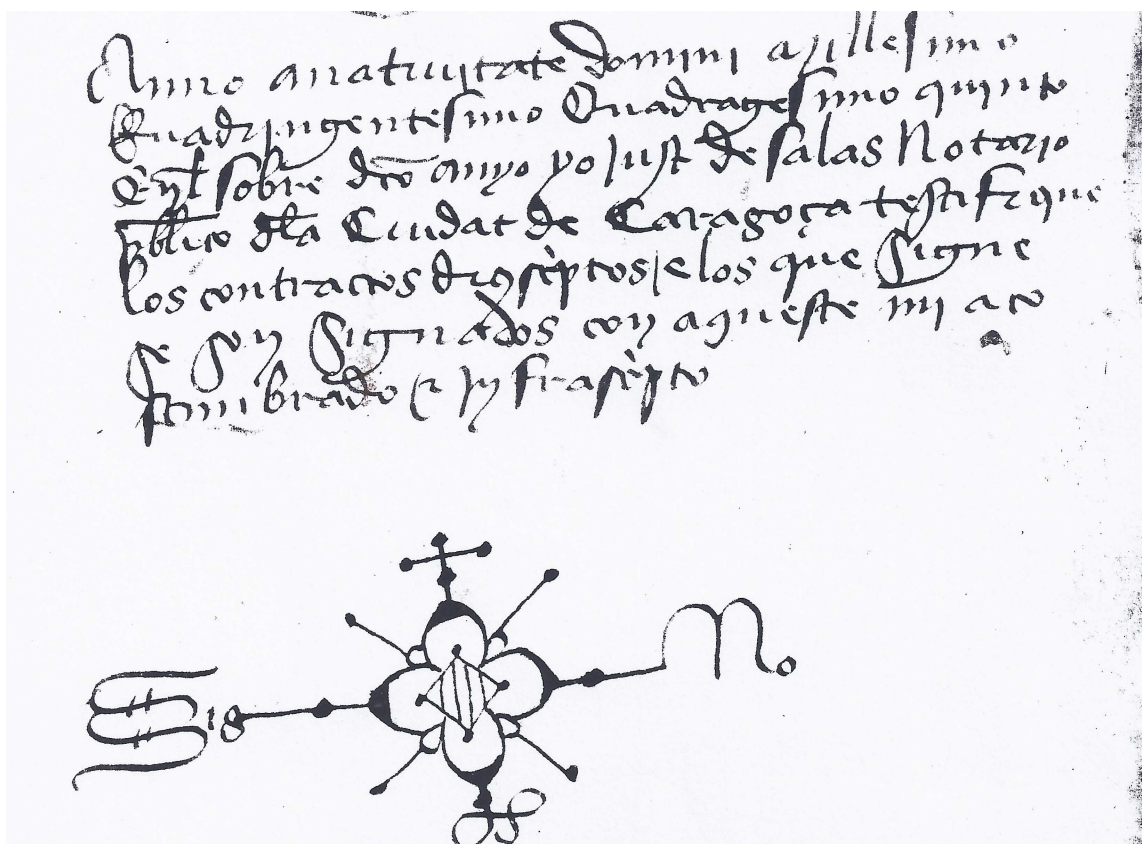 Anno anatiuitate domini Millesimo
Quadringentesimo Quadragesimo quinto
sobre dco anyo yo Just de salas Notario
publico dla Ciudat de Caragoça testifique
los contractos e los que Signe
se son Signados con aqueste mi aco
stumbrado Infrascpto
Sig No